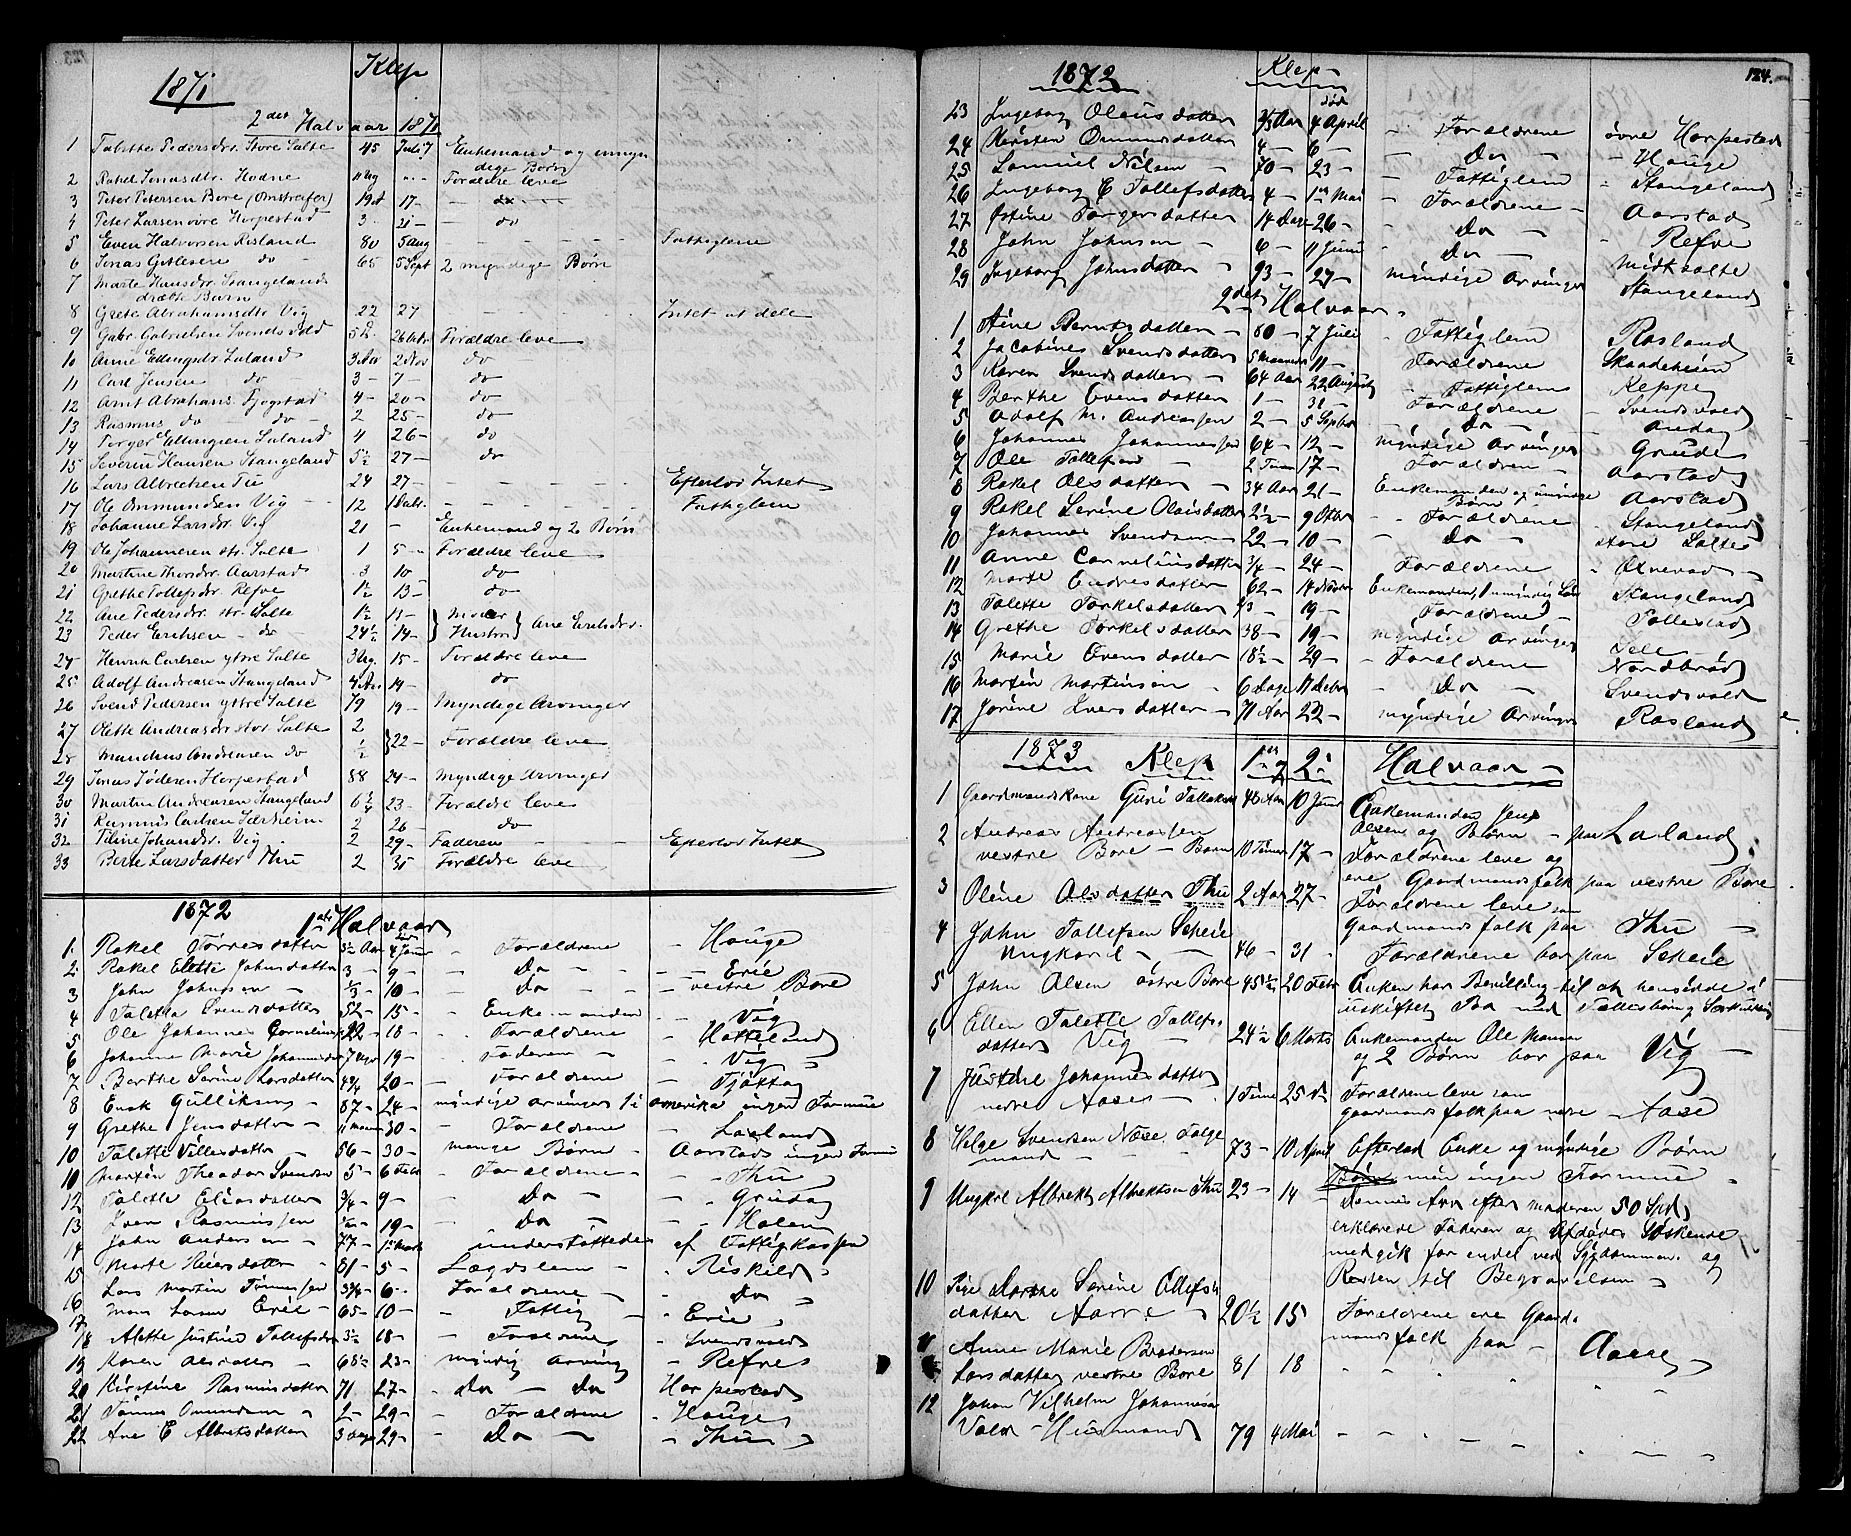 1871 Klep
2det Halvaar 1871
1 Talette Pedersdtr. Store Salte 45 Juli 7 Enkemand og umyn
dige Børn
2 Rakel Jonasdtr. Hodne 11 Ug Forældre leve
3 Peter Petersen Bore (Omstreifer) 19 d 17 - do
4 Peter Larsen øvre Horpestad 3 21 - do
5 Even Halvorsen Rosland 80 5 Aug - - - - Fattiglem
6 Jonas Gitlesen do 65 5 Sept 2 myndige Børn
7 Marte Hansdtr. Stangeland
dræbte Barn
8 Grete Abrahamsdtr Vig 22 27 - - - - Intet at dele
9 Gabr. Gabrielsen Svendsvold 5 D. 26 Oktr. Forældre leve
10 Anne Ellingsdtr. Laland 3 Aar 2 Nov do
11 Carl Jensen do 3 - 7 - do
12 Arnt Abrahams. Fjogstad 4 - 20 - do
13 Rasmus do - do 2 25 - do
14 Torger Ellingsen Laland 4 26 - do
15 Severin Hansen Stangeland 5½ 27 - do
16 Lars Albrectsen Tu 24 27 - - - - Efterlod Intet
17 Ole Ommundsen Vig 12 1 Decbr. - - - Fattiglem
18 Johanne Larsdtr. Vig 21 - Enkemand og 2 Børn
19 Ole Johannesen str. Salte 1 5 - Forældre leve
20 Martine Thorsdtr. Aarstad 3 10 do
21 Grethe Tollefsdr. Refve 1½ 13 - do
22 Ane Pedersdtr. str. Salte 1½ 11 - } Moder
23 Peder Eriksen - do 24½ 14 - } Hustro } Ane Eriksdtr.
24 Henrik Carlsen ytre Salte 3 Ug. 15 - Forældre leve
25 Adolf Andreasen Stangeland 4 Aar 19 - do
26 Svend Pedersen ytre Salte 79 19 - Myndige Arvinger
27 Olette Andreasdtr stor Salte 2
28 Mandius Andreasen do ½ } 22 - Forældre leve
29 Jonas Jødesen Horpestad 88 24 - Myndige Arvinger
30 Martin Andreasen Stangeland 6¾ 23 - Forældre leve
31 Rasmus Carlsen Særheim 2 26 - do
32 Tiline Johansdr. Vig 2 29 - Faderen - - Efterlod Intet
33 Berte Larsdatter Thu 2 31 Forældre leve
1872 1ste Halvaar
1 Rakel Tørresdatter 3½ Aar 4 Janr - Forældrene - Houge
2 Rakel Elette Johnsdatter 3 - 9 - - Do - - - Erie
3 John Johnsen - ⅓ - 10 - - Do - - vestre Bore
4 Taletta Svendsdatter 52 - 15 - - Enkemanden - Vig
5 Ole Johannes Cornelius 22 - 18 - Forældrene - Hatteland
6 Johanne Marie Johannesdr 7 Uger 19 - - Faderen - - Vig
7 Berthe Serine Larsdatter 4¾ - 20 - - Forældrene - Tjøtta
8 Enok Gulliksen - 87 - 24 - myndige arvinger 1 i amerika ingen Formue
9 Grethe Jensdatter - 11 maan 30 - - Forældrene - Laaland
10 Talette Villesdatter 56 - 30 - mange Børn - Aarstad ingen Formue
10 Martin Theodor Svendsen 5 - 6 Feb - Forældrene - Thu
12 Talette Eliasdatter ¾ - 9 - - Do - - Gruda
13 Iver Rasmussen - 19 - - Do - - Holen
14 John Andersen - 77 - 1 Marts understøttedes af Fattigkassen
15 Marte Heiersdatter - 81 - 5 - Lægdslem - - Riskild
16 Lars Martin Tønnessen 3¾ - 6 - - Forældrene - - Do
17 Mons Larsen Erie - 65 - 10 - - Fattig - - Erie
18 Alette Justine Tollefsdr 3½ 18 - - Forældrene - Svendsvold
19 Karen Olsdatter - 68½ 23 - myndig arving - Refve
20 Kirstine Rasmusdatter 71 27 - - Do - Do Horpestad
21 Tønnes Omundsen - 2 - 29 - - Forældrene - Houge
22 Ane E Albretsdatter 3 Dage 29 - - Do - - Thu
124.
1872 Klep
død
23 Ingeborg Olausdatter ⅔ Aar 4 April - Forældrene øvre Horpestad
24 Kirsten Ommundsdatter 4 - 6 - - Do - - Houge
25 Samuel Nilsen - 70 - 23 - - Fattiglem - Stangeland
26 Ingeborg E Tollefsdatter 4 - 1ste Mai - Forældrene - Aarstad
27 Østine Torgersdatter 14 Dage 26 - - Do - - Refve
28 John Johnsen - 6 - 11 Juni - Do - midtsalte
29 Ingeborg Johnsdatter - 93 - 27 - myndige Arvinger Stangeland
2det Halvaar
1 Ane Berntsdatter - 80 - 7 Juli - Fattiglem Rosland
2 Jacobine Svendsdatter 5 maaneder 11 - Forældrene Skaadeheien
3 Karen Svendsdatter - 64 Aar 22 August - Fattiglem Keppe
4 Berthe Evensdatter 1 - 31 - Forældrene - Svendsvold
5 Adolf M. Andreassen 2 - 5 Septbr - Do - Anda
6 Johannes Johannessen 64 - 12 - myndige Arvinger Grude
7 Ole Tollefsen - 2 Timer 17 - - Forældrene - Aarstad
8 Rakel Olsdatter - 34 Aar 21 - Enkemanden og umyndige
Børn Aarstad
9 Rakel Serine Olaisdatter 2½ - 9 Oktbr - Forældrene - Stangeland
10 Johannes Svendsen 22 - 10 - - Do - store Salte
11 Anne Corneliusdatter ¾ - 24 - Forældrene - Ølnevad
12 Marte Endresdatter 62 - 14 Novbr Enkemanden, 1 umyndig Søn Stangeland
13 Talette Torkelsdatter ⅔ - 19 - Forældrene - Tollestad
14 Grethe Torkelsdatter 38 - 19 - myndige Arvinger Sele
15 Marie Evensdatter 18½ - 29 - - Forældrene - Nordbrød
16 Martin Martinsen - 6 Dage 11 Decbr - Do - Svendsvold
17 Jorine Iversdatter - 71 Aar 22 - myndige Arvinger Rosland
1873 Klep 1ste og 2det Halvaar -
1 Gaardmandskone Guri Tollaksdr 43 Aar 10 Janr Enkemanden Jens
Olsen og Børn - paa Laland
2 Andreas Andreassen
vestre Bore - Barn 10 Timer 17 - Forældrene leve og
ere Gaardmandsfolk paa vestre Bore
3 Oline Olsdatter Thu 2 Aar 27 - Forældrene leve som
Gaardmandsfolk paa Thu -
4 John Tollefsen Scheie
Ungkarl - - 46 - 31 - Forældrene bor paa Scheie
5 John Olsen østre Bore 45½ 20 Febr Enken har Bevilling til at hensidde i
uskiftet Bo med Fællesbørn og Særkuldbørn
6 Ellen Talette Tollefs-
datter Vig - 24½ 6 Marts Enkemanden Ole Hansen
og 2 Børn bor paa Vig -
7 Justine Johannesdatter
nedre Aase - - 1 Time 25 do Forældrene leve som
Gaardmandsfolk paa nedre - Aase
8 Helge Svensen Næse Følge
mand - - - 73 - 10 April Efterlod Enke og myndige Børn
Børn men ingen Formue -
9 Ungkrl Albrekt Albrektsen Thu 23 - 14 Dennes Arv efter moderen 50 Spd
erklærede Faderen og Afdødes Søskende
medgik for endel ved Sygdommen og
Resten til Begravelsen -
10 Pige Dorthe Serine Ollefs-
datter Aarre - 20½ 15 Forældrene ere Gaard-
mandsfolk paa - Aarre
11 Anne Marie Brodersen
Larsdatter vestre Bore 81 18 - - - - -
12 Johan Vilhelm Johannesen
Voler - Husmand 79 4 Mai - - - - -